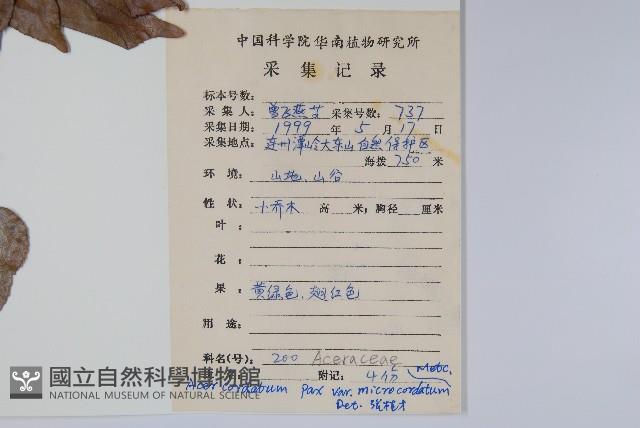 中国科学院华南植物研究所
采集记录
标本号数:
采集人: 曾飞燕 采集号数: 737
采集日期: 1999 年 5 月 17 日
采集地点: 连州潭岭大东山自然保护区
海拨 750 米
环境: 山地、山谷
性状: 小乔木 高 米; 胸径 厘米
叶:
花:
果: 黄绿色、翅红色
用途:
科名(号): 200 Aceraceae
附记: 4份 Metc.
Acer cordatum Pax var. microcordatum
Det. 张桂才
國立自然科學博物館
NATIONAL MUSEUM OF NATURAL SCIENCE